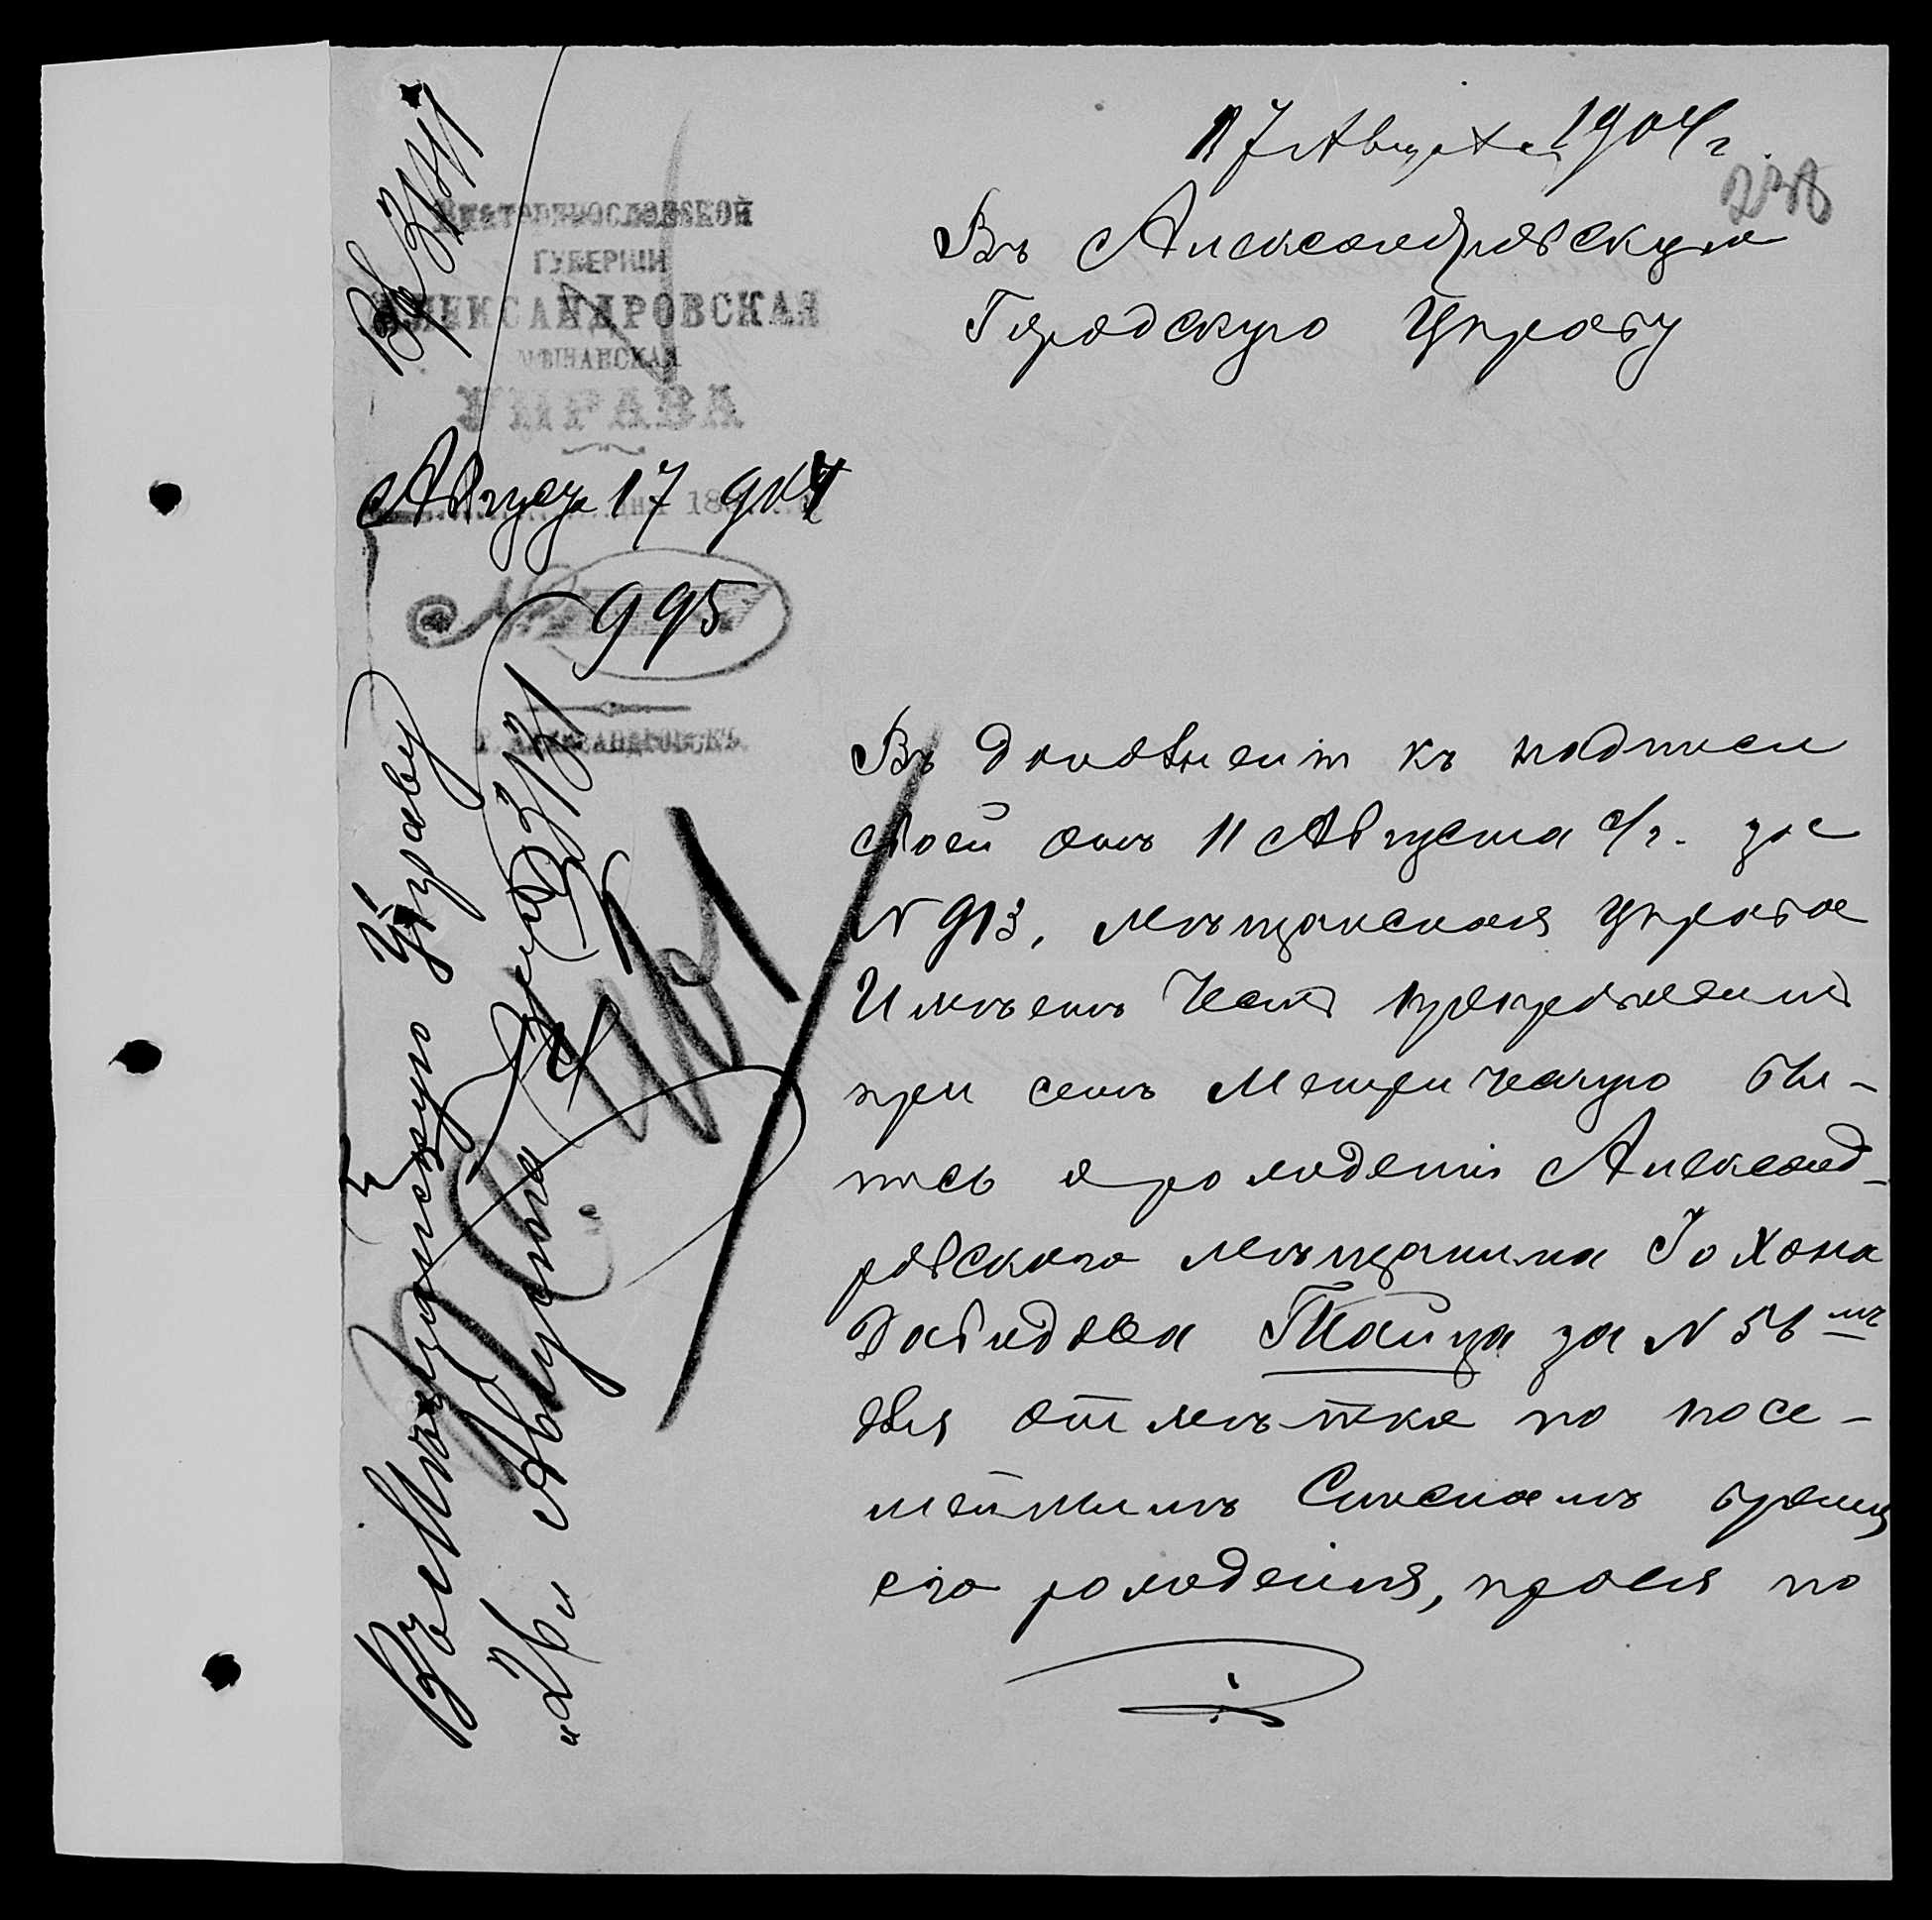 17 Августа 1904 г.
238
Въ Александровскую
Городскую Управу
Екатеринославской
ГУБЕРНІИ
АЛЕКСАНДРОВСКАЯ
МѢЩАНСКАЯ
УПРАВА
Августа 17 дня 1904
№ 995
Г. АЛЕКСАНДРОВСКЪ.
Въ дополненіи къ надписи
своей отъ 11 Августа с/г. за
№ 913, мѣщанская управа
Имѣетъ честь препроводить
при семъ Метрическую вы-
пись о рожденіи Александ-
ровскаго мѣщанина Іохона
Давидова Тайца за № 56 мъ
для отмѣтки по посе-
мейнымъ Спискамъ
его рожденія, прося по
Въ Мѣщанскую Управу
"26" Августа 3131